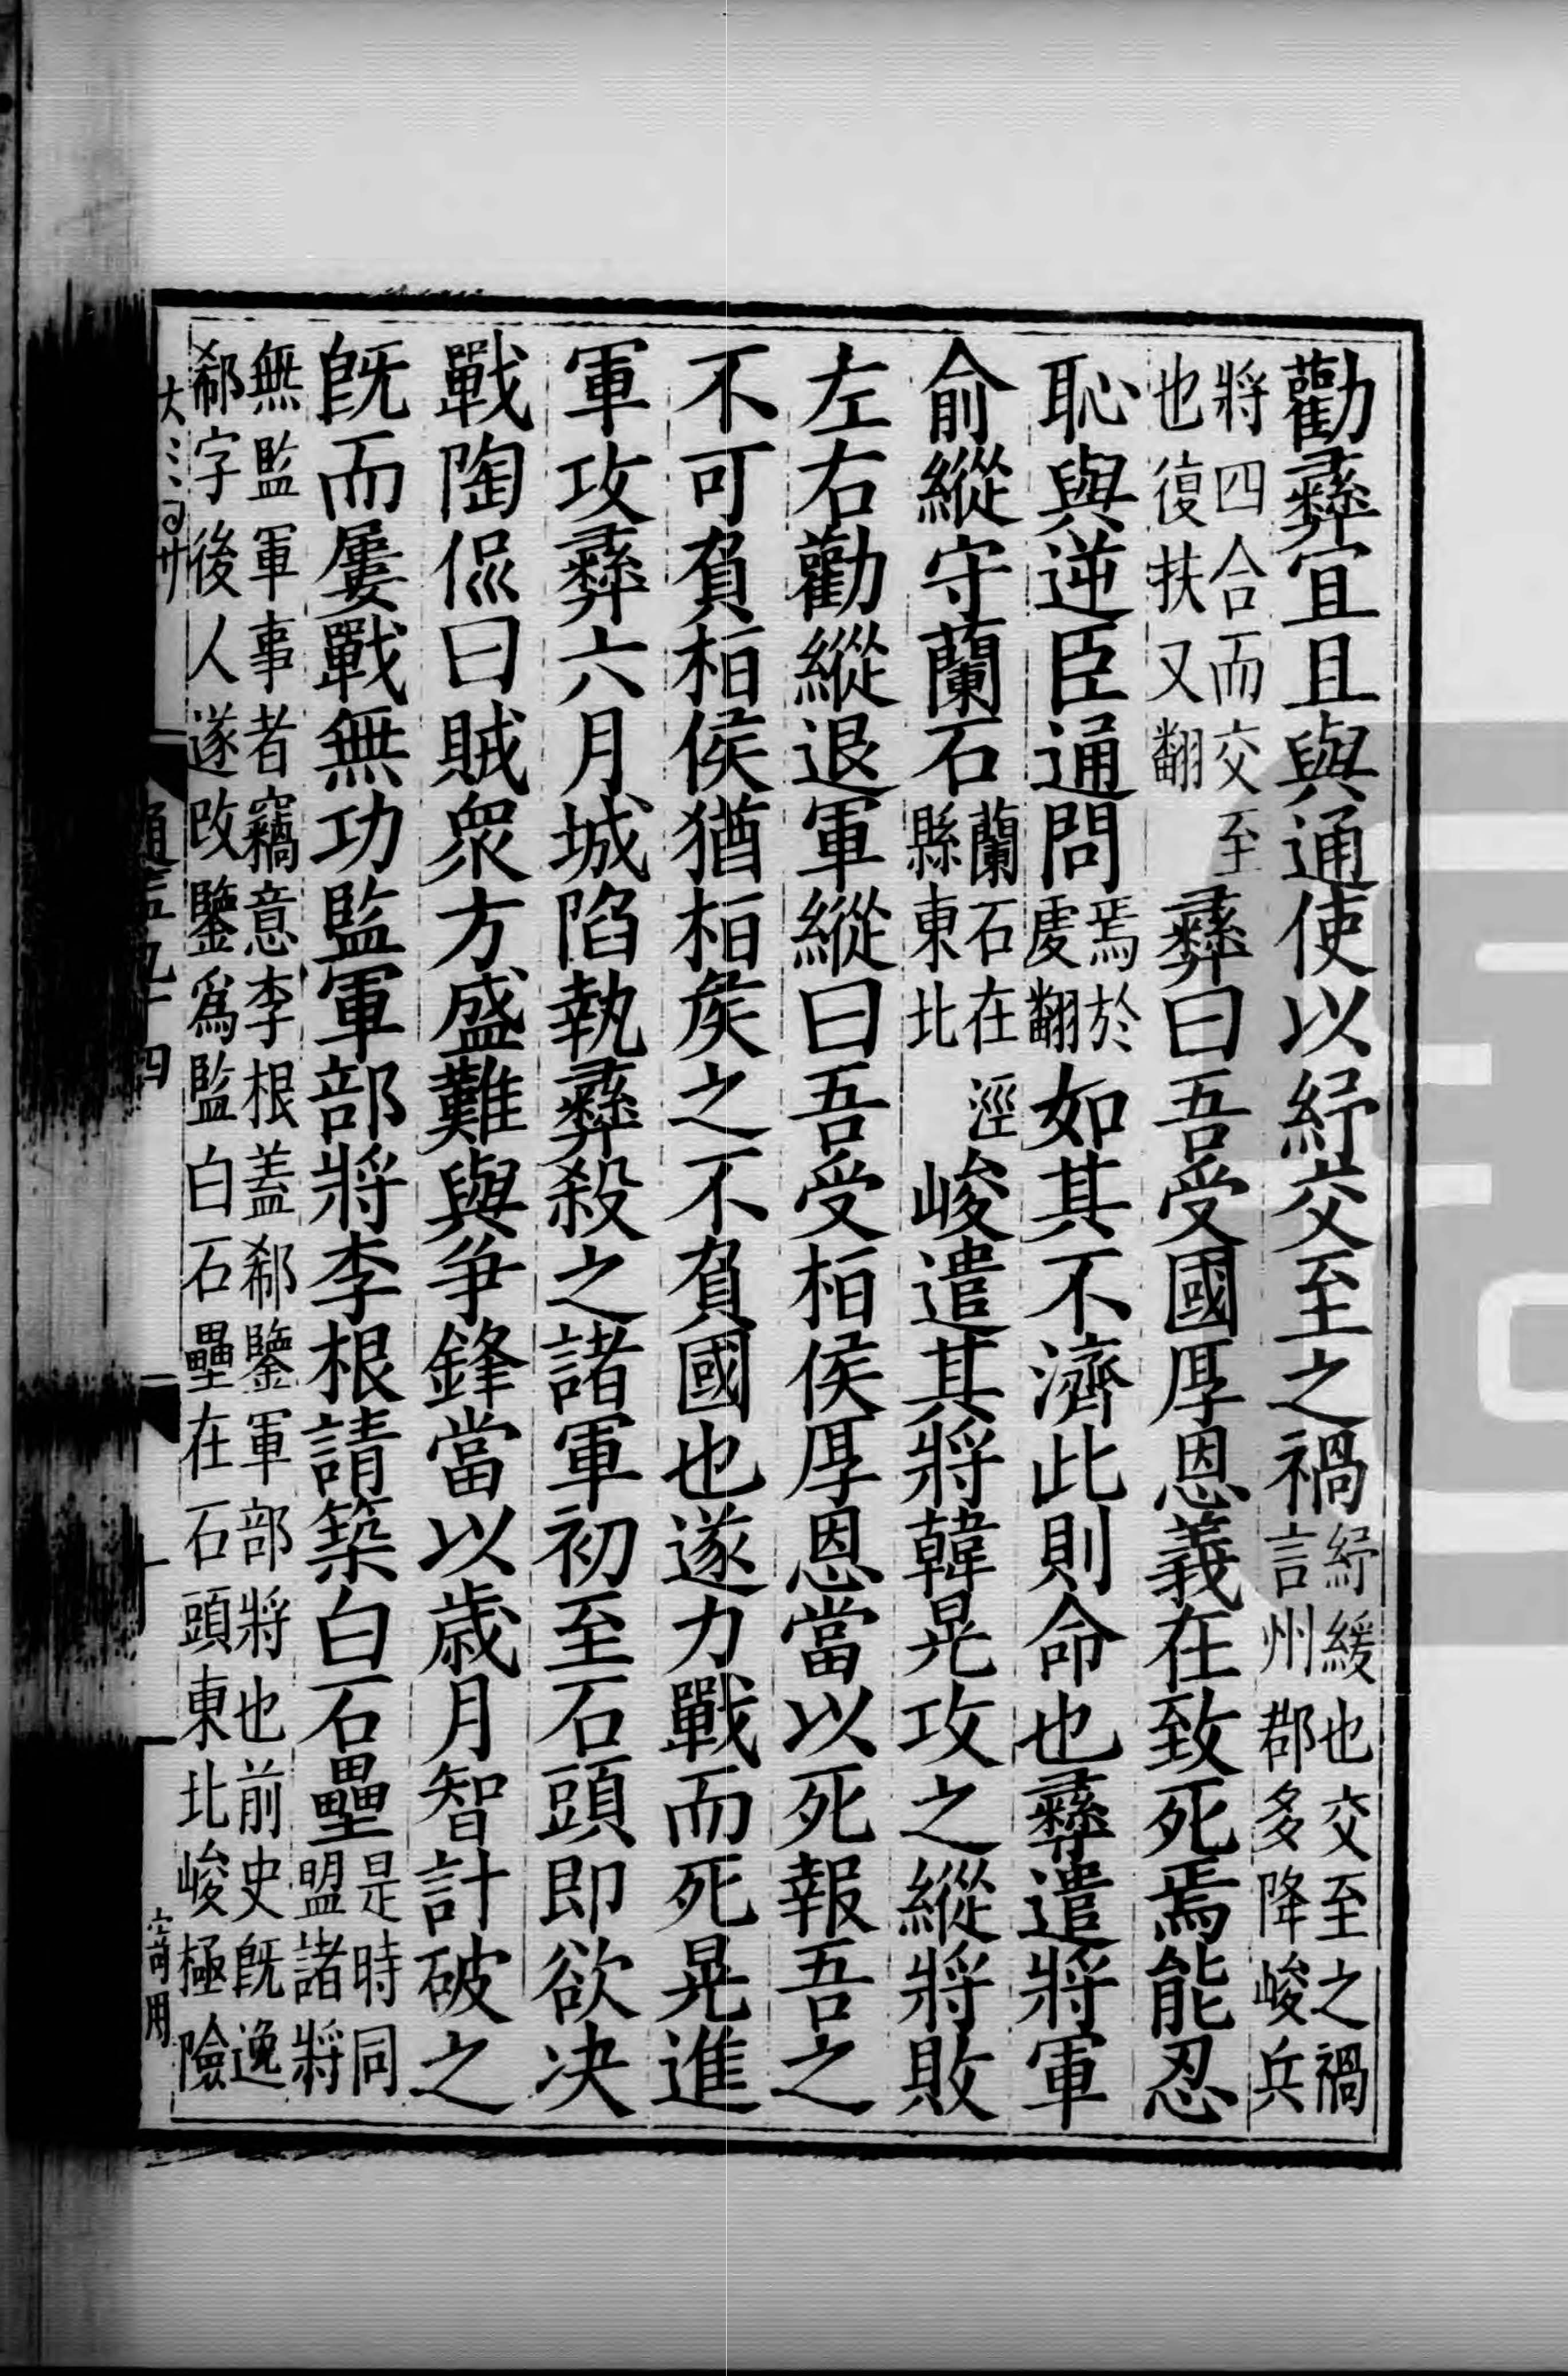 勸彞宜且與通使以紓交至之禍紓緩也交至之禍言州郡多降峻兵
將四合而交至也復扶又翻彞曰吾受國厚恩義在致死焉能忍
恥與逆臣通問焉於虔翻如其不濟此則命也彞遣將軍
俞縱守蘭石蘭石在涇縣東北峻遣其將韓晃攻之縱將敗
左右勸縱退軍縱曰吾受桓侯厚恩當以死報吾之
不可負桓侯猶桓侯之不負國也遂力戰而死晃進
軍攻彞六月城陷執彞殺之諸軍初至石頭即欲决
戰陶侃曰賊衆方盛難與爭鋒當以歲月智計破之
旣而屢戰無功監軍部將李根請築白石壘是時同盟諸將
無監軍事者竊意李根蓋郗鑒軍部將也前史旣逸郗字後人遂改鑒爲監白石壘在石頭東北峻極險